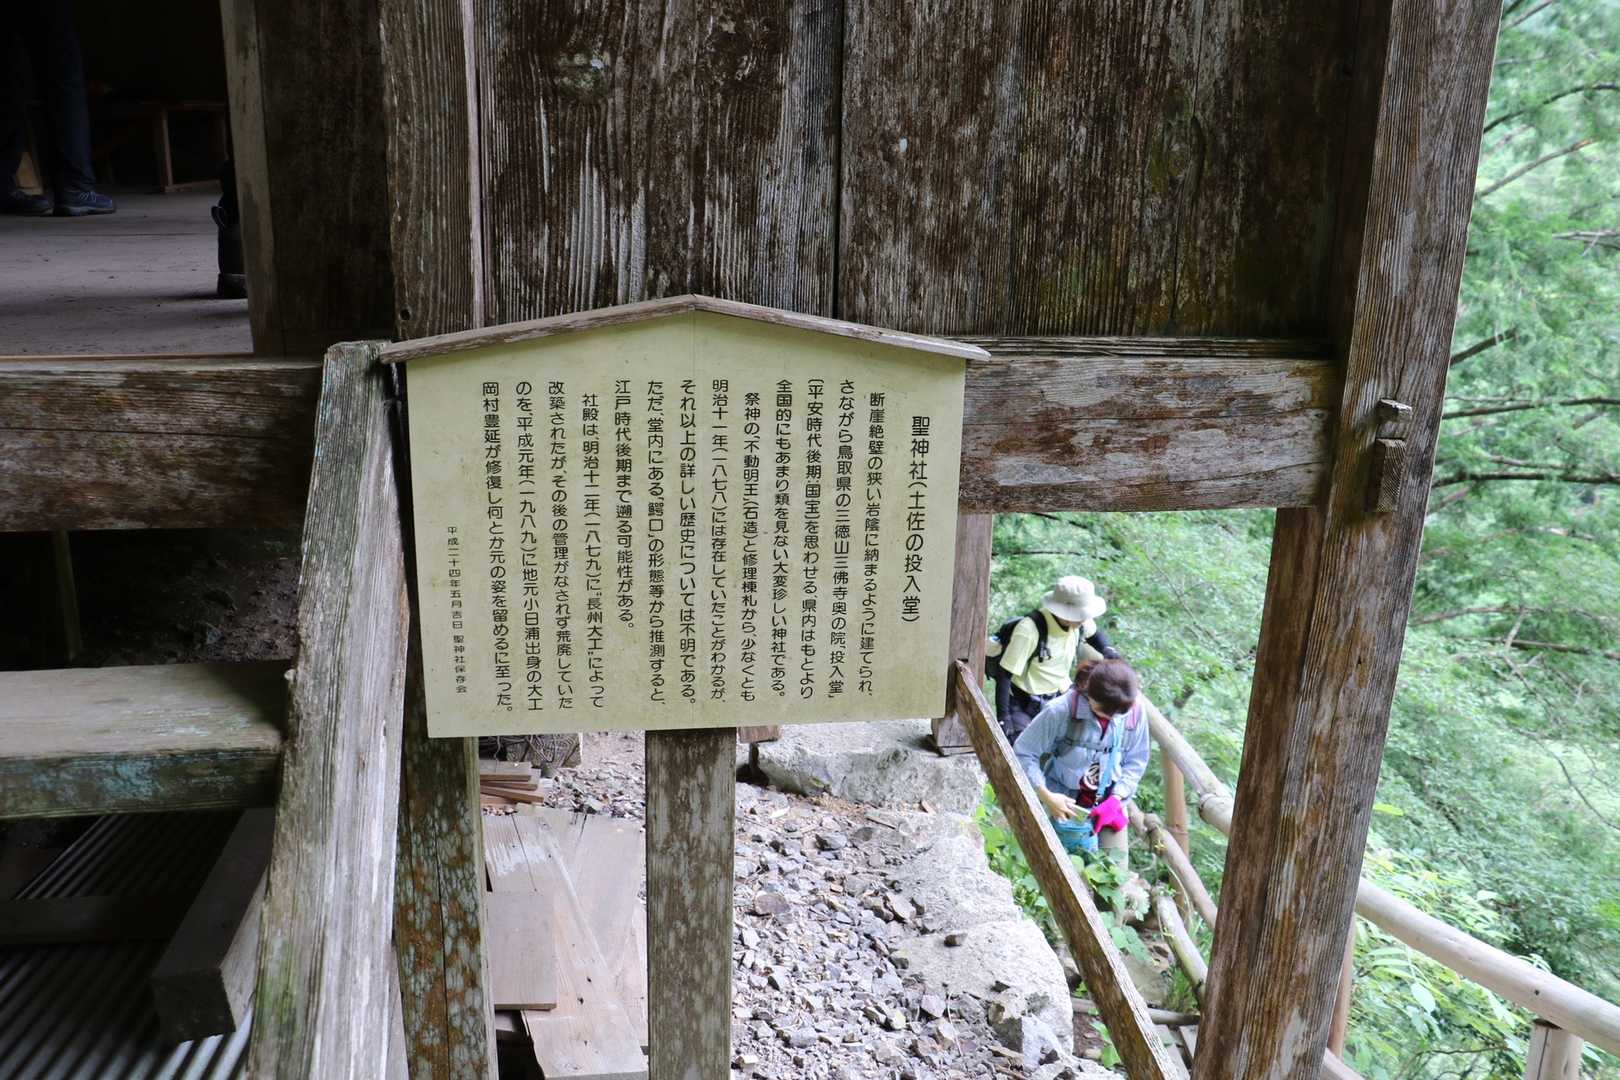 聖神社(土佐の投入堂)
断崖絶壁の狭い岩陰に納まるように建てられ、
さながら鳥取県の三徳山三佛寺奥の院“投入堂”
(平安時代後期・国宝)を思わせる、県内はもとより
全国的にもあまり類を見ない大変珍しい神社である。
祭神の“不動明王”(石造)と修理棟札から、少なくとも
明治十一年(一八七八)には存在していたことがわかるが、
それ以上の詳しい歴史については不明である。
ただ、堂内にある“鰐口”の形態等から推測すると、
江戸時代後期まで遡る可能性がある。
社殿は、明治十二年(一八七九)に“長州大工”によって
改築されたが、その後の管理がなされず荒廃していた
のを、平成元年(一九八九)に地元小日浦出身の大工
岡村豊延が修復し何とか元の姿を留めるに至った。
平成二十四年五月吉日 聖神社保存会